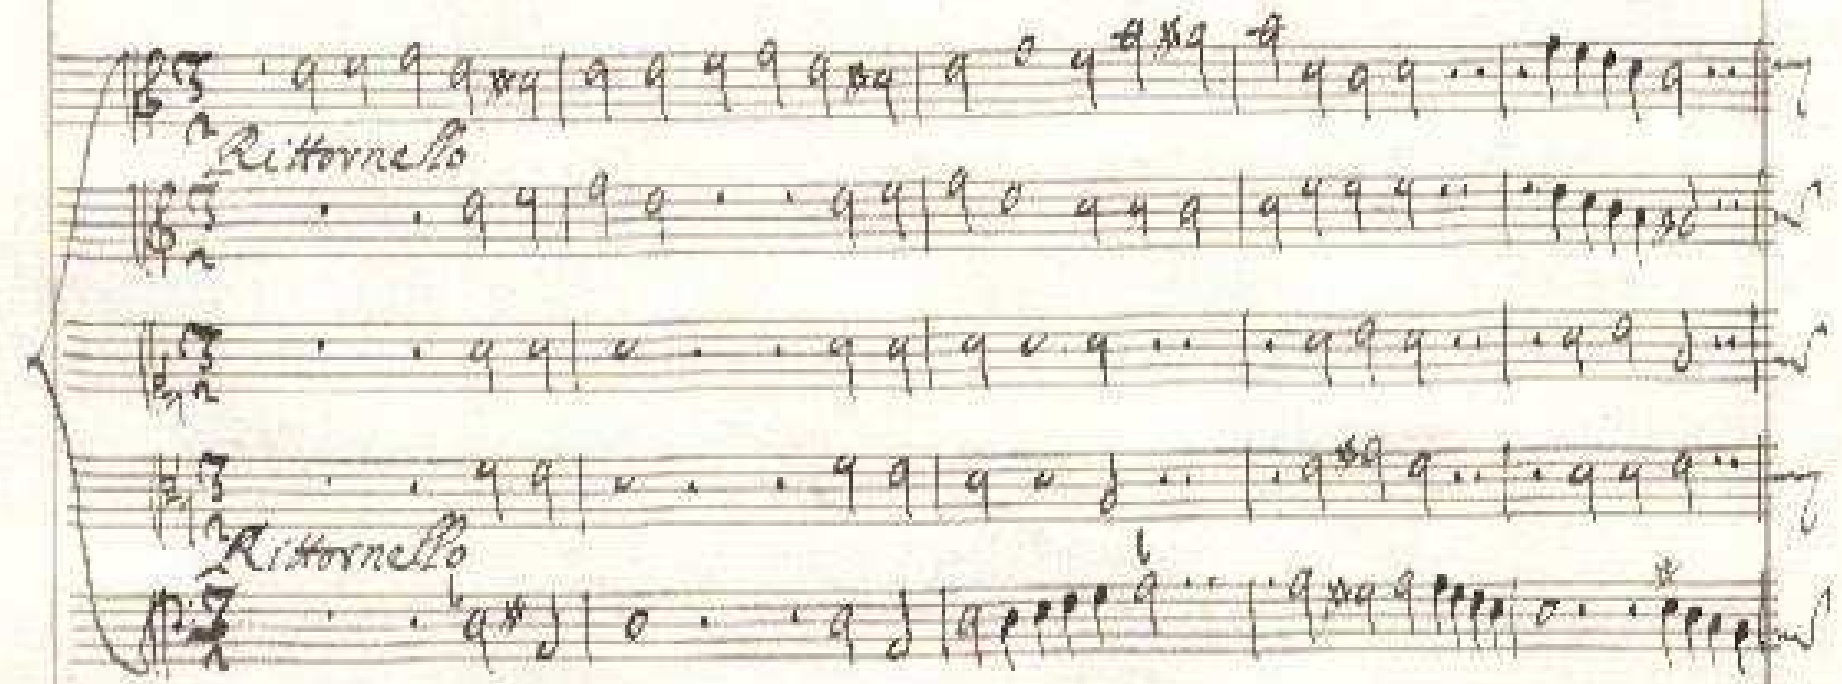 Rittornello
Rittornello